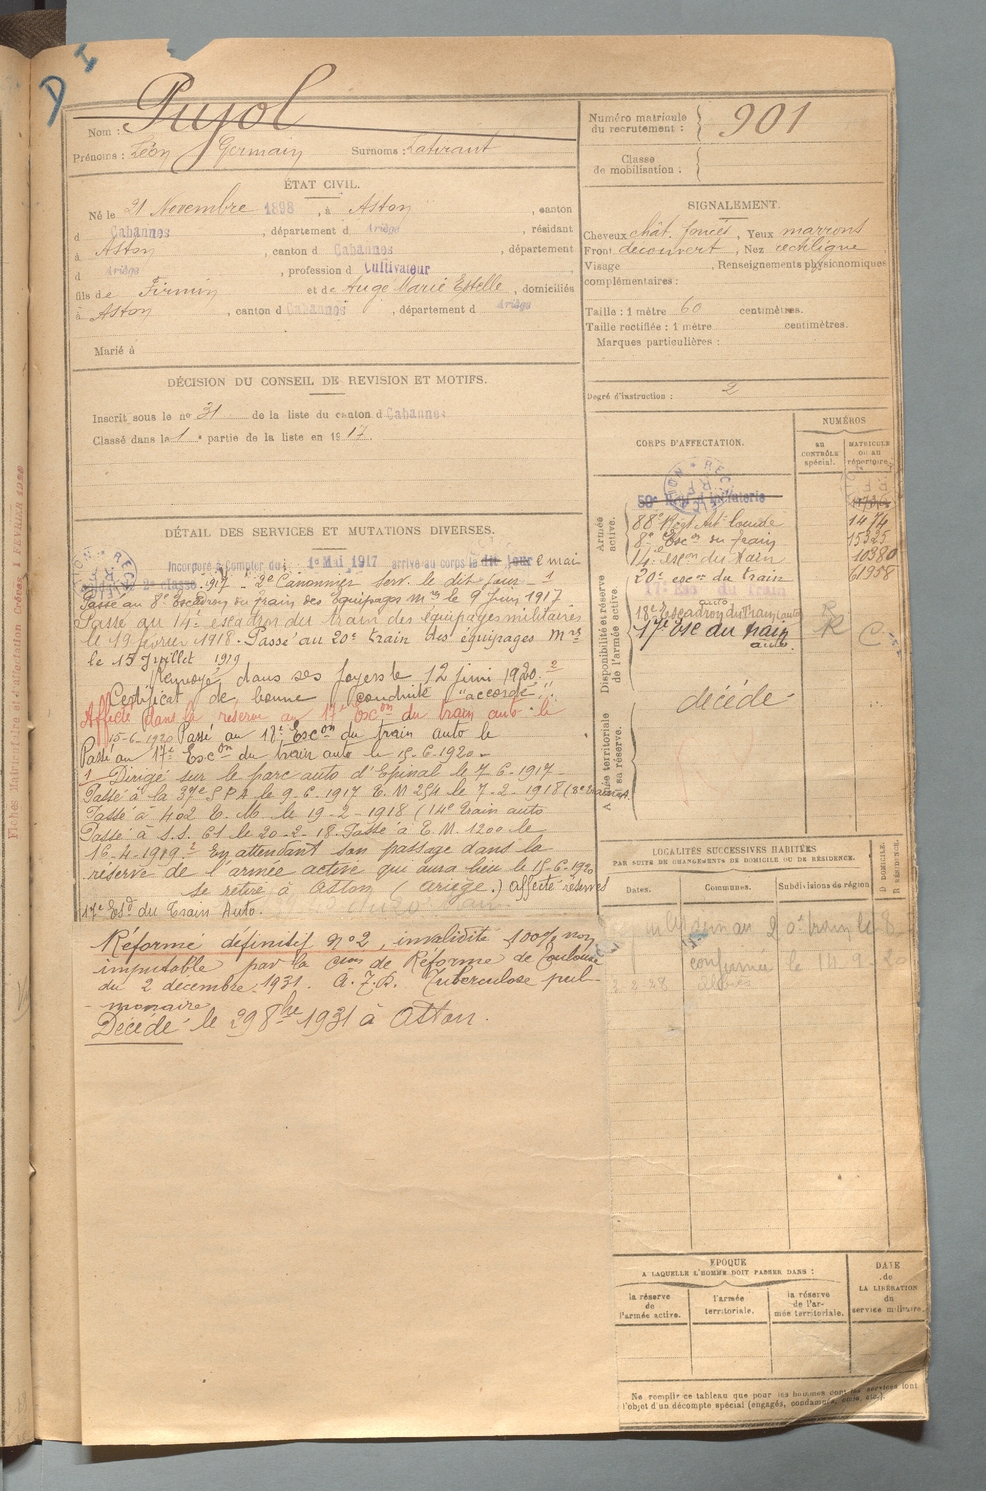 D I
Nom : Pujol
Prénoms : Léon Germain Surnoms :
Numéro matricule du recrutement : 901
Classe de mobilisation :
ÉTAT CIVIL.
Né le 21 Novembre 1898, à Aston, canton
d Cabannes, département d Ariège, résidant
à Aston, canton d Cabannes, département
d Ariège, profession d Cultivateur
fils de Firmin et de Augé Marie Estelle, domiciliés
à Aston, canton d Cabannes, département d Ariège
Marié à
SIGNALEMENT.
Cheveux chât. foncés, Yeux marrons
Front découvert, Nez rectiligne
Visage , Renseignements physionomiques
complémentaires :
Taille : 1 mètre 60 centimètres.
Taille rectifiée : 1 mètre centimètres.
Marques particulières :
Degré d'instruction : 2
DÉCISION DU CONSEIL DE REVISION ET MOTIFS.
Inscrit sous le n° 31 de la liste du canton d Cabannes
Classé dans la 1e partie de la liste en 1917.
DÉTAIL DES SERVICES ET MUTATIONS DIVERSES.
Incorporé à compter du 1er Mai 1917 arrivé au corps le dit jour 2 mai
2e classe. 1917 - 2e Canonnier Serv. le dit jour - 1
Passé au 8e Escadron du train des Équipages Mres le 9 Juin 1917
Passé au 14e escadron du train des équipages militaires
le 19 février 1918. Passé au 20e train des équipages Mres
le 15 Juillet 1919
Renvoyé dans ses foyers le 12 juin 1920. 2
Certificat de bonne conduite "accordé".
Affecté dans la réserve au 17e Escon du train auto le
15-6-1920 Passé au 18e Escon du train auto le
Passé au 17e Escon du train auto le 15-6-1920 -
1 Dirigé sur le parc auto d'Epinal le 7-6-1917 -
Passé à la 37e S P A le 9-6-1917 T. M 254 le 7-2-1918
Passé à 402 T. M. le 19-2-1918 (14e train auto
Passé à S.S. 61 le 20-2-18. Passé à T. M. 1200 le
16-4-1919. 2 En attendant son passage dans la
réserve de l'armée active qui aura lieu le 15-6-1920
se retire à Aston (Ariège.) affecté réserves
17e Esd du Train Auto.
Réformé définitif n°2, invalidité 100% non
imputable par la Cion de Réforme de Toulouse
du 2 décembre 1931. Tuberculose pul-
monaire
Décédé le 29 8bre 1931 à Aston.
CORPS D'AFFECTATION.
NUMÉROS
au CONTRÔLE spécial.
MATRICULE ou au répertoire.
Armée active.
59e Régt d'Infanterie
88e Régt Art. lourde 1474
8e Escon du train 15325
14e escon du train 10380
20e escon du train 61958
Disponibilité et réserve de l'armée active.
17e Esc du Train
18e Escadron du Train auto
17e Esc du train auto. C
Armée territoriale et sa réserve.
décédé
LOCALITÉS SUCCESSIVES HABITÉES
PAR SUITE DE CHANGEMENTS DE DOMICILE OU DE RÉSIDENCE.
Dates. Communes. Subdivisions de région
D DOMICILE. R RÉSIDENCE.
confirmée le 14-9-20
ÉPOQUE
A LAQUELLE L'HOMME DOIT PASSER DANS :
la réserve de l'armée active.
l'armée territoriale.
la réserve de l'armée territoriale.
DATE de LA LIBÉRATION du service militaire.
Ne remplir ce tableau que pour les hommes dont les services font
l'objet d'un décompte spécial (engagés, condamnés, omis, etc.).